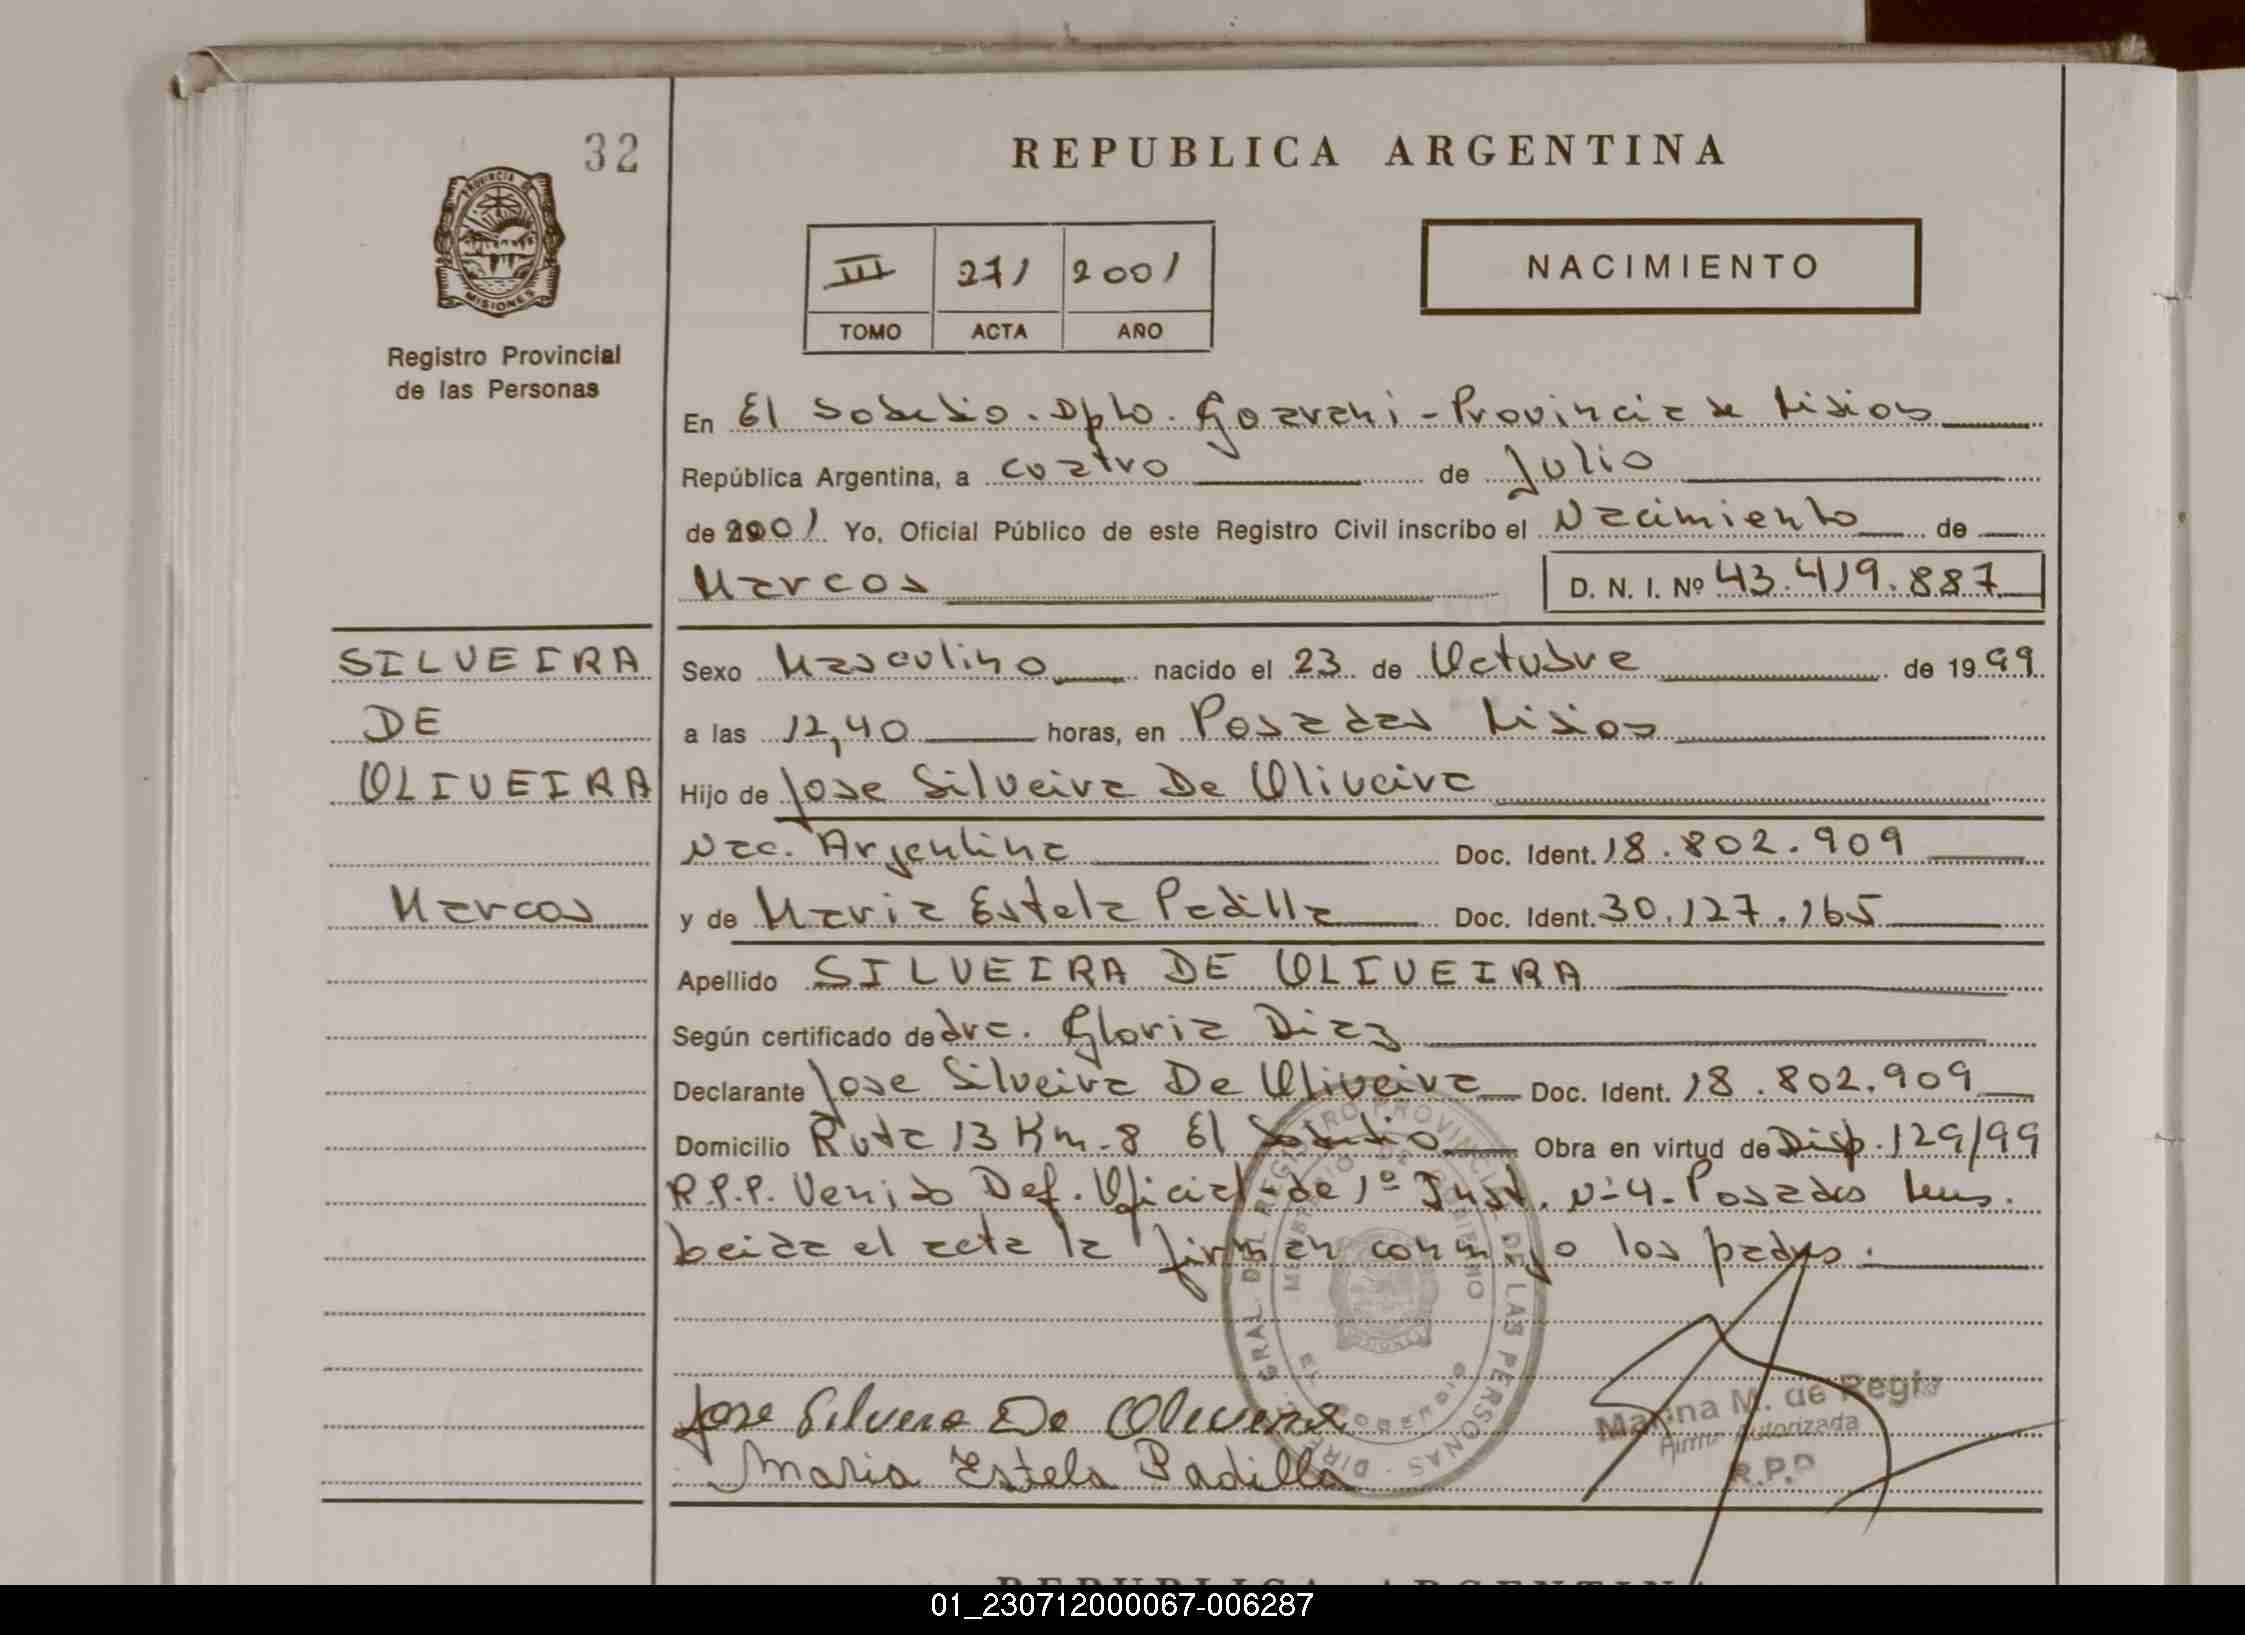 32
REPUBLICA ARGENTINA
PROVINCIA DE
MISIONES
Registro Provincial
de las Personas
III 271 2001
TOMO ACTA AÑO
NACIMIENTO
En El Soberbio. Dpto. Guarani - Provincia de Misiones
República Argentina, a cuatro de Julio
de 2001 Yo, Oficial Público de este Registro Civil inscribo el Nacimiento de
Marcos D. N. I. Nº 43.419.887
SILVEIRA
DE
OLIVEIRA
Marcos
Sexo Masculino nacido el 23 de Octubre de 1999
a las 12,40 horas, en Posadas Misiones
Hijo de Jose Silveira De Oliveira
Nac. Argentina Doc. Ident. 18.802.909
y de Maria Estela Padilla Doc. Ident. 30.127.165
Apellido SILVEIRA DE OLIVEIRA
Según certificado de dra. Gloria Diaz
Declarante Jose Silveira De Oliveira Doc. Ident. 18.802.909
Domicilio Ruta 13 Km-8 El Soberbio Obra en virtud de Disp. 129/99
R.P.P. Venido Def. Oficial de 1º Inst. Nº 4- Posadas Mnes.
Leida el acta la firman conmigo los padres.
DIR. GRAL. DEL REGISTRO PROVINCIAL DE LAS PERSONAS
MINISTERIO DE GOBIERNO
EL SOBERBIO
Jose Silvera De Olivera
Maria Estela Padilla
Marina M. de Regis
Firma Autorizada
R.P.P.
REPUBLICA ARGENTINA
01_230712000067-006287